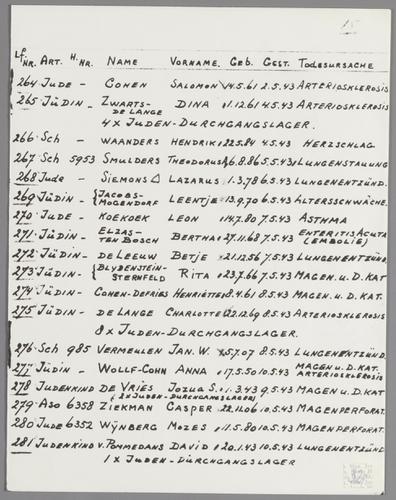 15
Lf. NR. ART. H. NR. NAME VORNAME. Geb. Gest. TODESURSACHE
264 JUDE - COHEN SALOMON 14.5.61 4.5.43 ARTERIOSKLEROSIS
265 JÜDIN - ZWARTS- DINA 01.12.61 4.5.43 ARTERIOSKLEROSIS
DE LANGE
4 x JUDEN-DURCHGANGSLAGER.
266 Sch - WAANDERS HENDRIK 22.5.84 4.5.43 HERZSCHLAG
267 Sch 5953 SMULDERS THEODORUS 26.8.86 5.5.43 LUNGENSTAUUNG
268 Jude - SIEMONS LAZARUS 1.3.78 6.5.43 LUNGENENTZÜND.
269 JÜDIN - {JACOBS- LEENTJE 13.9.70 6.5.43 ALTERSSCHWÄCHE.
MOGENDORF
270 JUDE - KOEKOEK LEON 14.7.80 7.5.43 ASTHMA
271 JÜDIN - ELZAS- BERTHA 27.11.68 7.5.43 ENTERITIS ACUTA
TEN BOSCH (EMBOLIE)
272 JÜDIN - DE LEEUW BETJE 21.12.56 7.5.43 LUNGENENTZÜND.
273 JÜDIN - {BLYDENSTEIN- RITA 23.7.66 7.5.43 MAGEN. U. D. KAT
STERNFELD
274 JÜDIN - COHEN-DEFRIES HENRIËTTE 18.4.61 8.5.43 MAGEN. U. D. KAT.
275 JÜDIN - DE LANGE CHARLOTTE 22.12.69 8.5.43 ARTERIOSKLEROSIS
8 x JUDEN-DURCHGANGSLAGER.
276 Sch 985 VERMEULEN JAN. W. 5.7.07 8.5.43 LUNGENENTZÜND.
277 JÜDIN - WOLLF-COHN ANNA 17.5.50 10.5.43 MAGEN U. D. KAT
ARTERIOSKLEROSIS
278 JUDENKIND DE VRIES JOZUA S. 1.3.43 9.5.43 MAGEN U. D. KAT
(2x JUDEN-DURCHGANGSLAGER)
279 ASO 6358 ZIEKMAN CASPER 22.11.06 10.5.43 MAGENPERFORAT.
280 JUDE 6352 WIJNBERG MOZES 11.5.80 10.5.43 MAGENPERFORAT.
281 JUDENKIND V. POMMEDANS DAVID 20.1.43 10.5.43 LUNGENENTZÜND
1 x JUDEN-DURCHGANGSLAGER